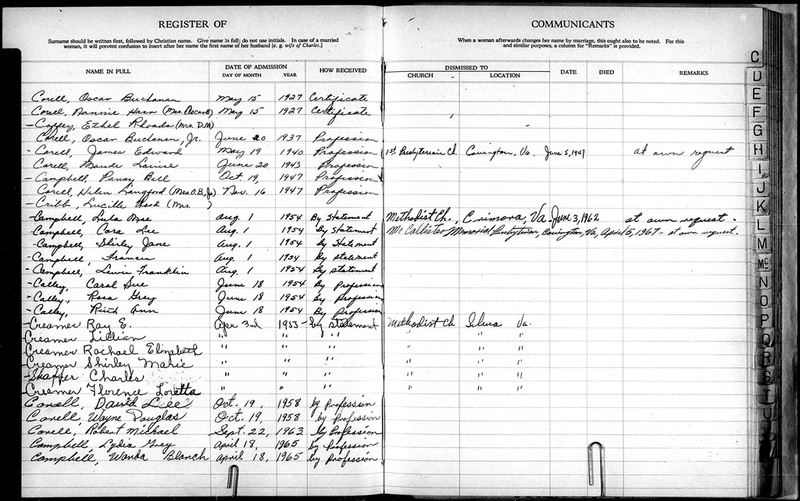 REGISTER OF
COMMUNICANTS
Surname should be written first, followed by Christian name. Give name in full; do not use initials. In case of a married
woman, it will prevent confusion to insert after her name the first name of her husband [e. g. wife of Charles.]
When a woman afterwards changes her name by marriage, this ought also to be noted. For this
and similar purposes, a column for "Remarks" is provided.
NAME IN FULL DATE OF ADMISSION DAY OF MONTH YEAR HOW RECEIVED DISMISSED TO CHURCH LOCATION DATE DIED REMARKS
Corell, Oscar Buchanan May 15 1927 Certificate
Corell, Nannie (Mrs. Oscar B.) May 15 1927 Certificate
- Coffey, Ethel Rhoads (Mrs. D.M.)
Corell, Oscar Buchanan, Jr. June 20 1937 Profession
- Corell, James Edward May 19 1940 Profession 1st Presbyterian Ch Covington, Va. June 5, 1947 at own request
Corell, Maude June 20 1943 Profession
- Campbell, Pansy Bell Oct. 19, 1947 Profession
Corell, Helen Langford (Mrs. O.B. Jr.) Nov. 16 1947 Profession
- Cribb, Lucille (Mrs. )
- Campbell, Lula Mae Aug. 1 1954 By Statement Methodist Ch., Crimora, Va. June 3, 1962 at own request -
- Campbell, Cora Lee Aug. 1 1954 By statement McCallister Memorial Presbyterian, Covington, Va, April 5, 1967 - at own request.
- Campbell, Shirly Jane Aug. 1 1954 By Statement
- Campbell, Francis Aug. 1 1954 By statement
- Campbell, Lewis Franklin Aug. 1 1954 By statement
- Catby, Carol Sue June 18 1954 By Profession
- Catby, Rosa Grey June 18 1954 By Profession
- Catby, Ruth Ann June 18 1954 By Profession
- Creamer Ray E. Apr 3rd 1953 - by statement Methodist Ch Selma Va.
- Creamer Lillian " " " " " " " "
- Creamer Rachael Elizabeth " " " " " " " "
- Creamer Shirley Marie " " " " " " " "
- Charles " " " " " " " "
- Creamer Florence Loretta " " " " " " " "
Corell, David Lee Oct. 19, 1958 by Profession
Corell, Wayne Douglas Oct. 19, 1958 by Profession
Corell, Robert Michael Sept. 22, 1963 by Profession
Campbell, Lydia Grey April 18, 1965 by Profession
Campbell, Wanda Blanch April 18, 1965 by Profession
C
D
E
F
G
H
I
J
K
L
M
Mc
N
O
P
Q
R
S
T
U